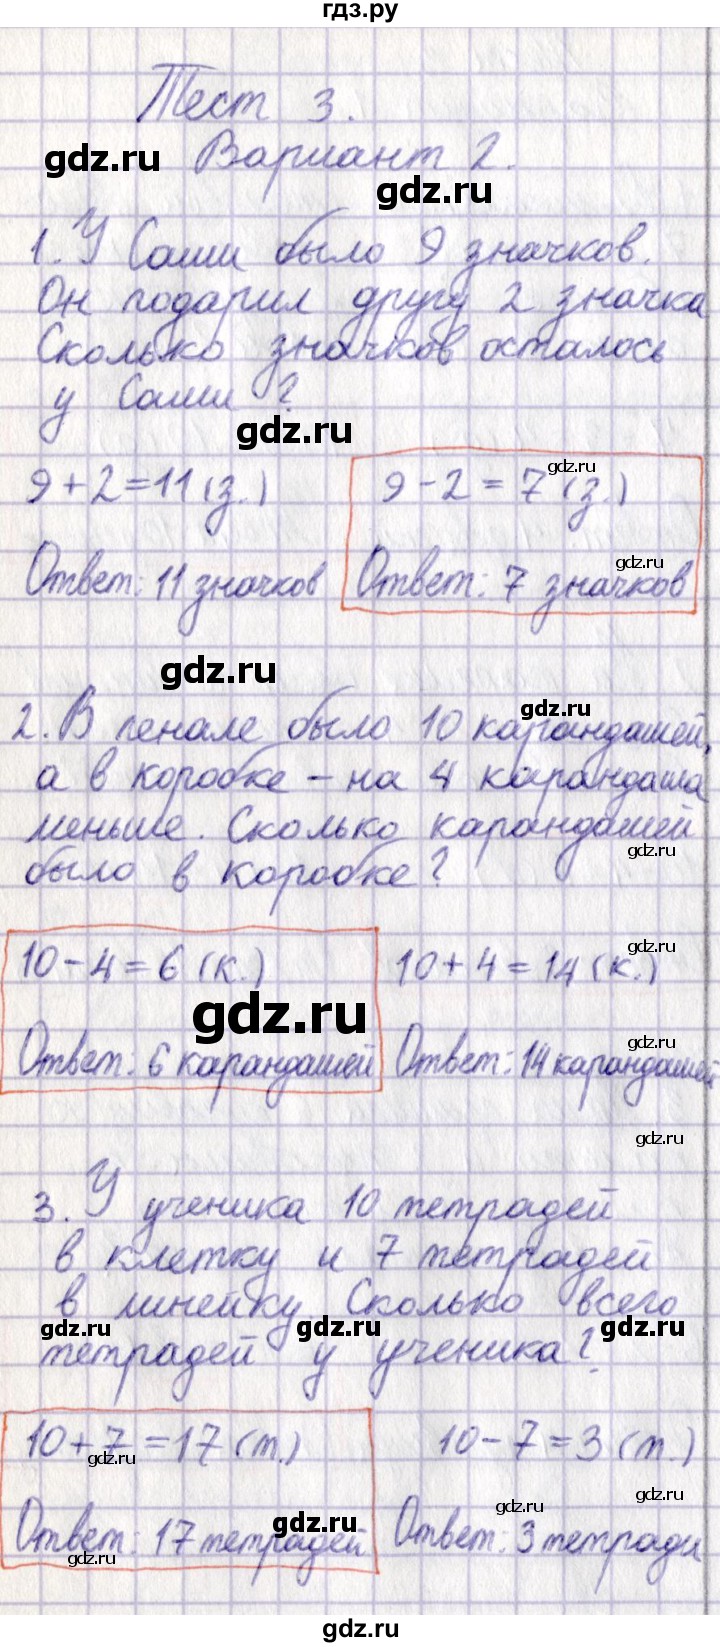 гдз.ру
Тест 3.
Вариант 2.
gdz.ru
gdz.ru
1. У Саши было 9 значков.
Он подарил другу 2 значка
Сколько значков осталось
у Саши?
gdz.ru
9+2=11(з.)
9-2=7(з.)
gdz.ru
Ответ: 11 значков
Ответ: 7 значков
gdz.ru
gdz.ru
gdz.ru
2. В пенале было 10 карандашей,
а в коробке - на 4 карандаша
меньше. Сколько карандашей
gdz.ru
было в коробке?
10-4=6(к.)
10+4=14(к.)
gdz.ru
gdz.ru
Ответ: 6 карандашей
Ответ: 14 карандашей
gdz.ru
gdz.ru
3. У ученика 10 тетрадей
в клетку и 7 тетрадей
в линейку. Сколько всего
gdz.ru
gdz.ru
gdz.ru
тетрадей у ученика?
10+7=17(т.)
10-7=3(т.)
gdz.ru
gdz.ru
gdz.ru
gdz.ru
Ответ: 17 тетрадей.
Ответ: 3 тетради
gdz.ru
gdz.ru